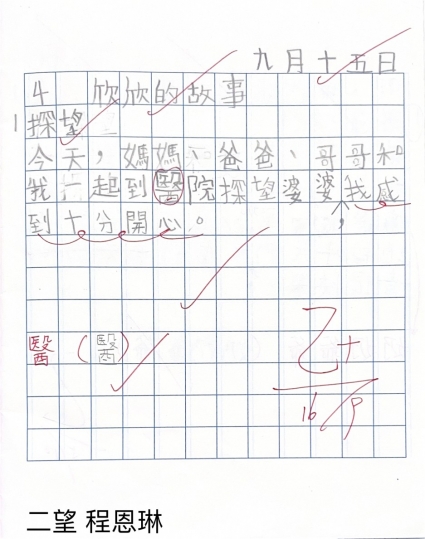 九月十五日
4 欣欣的故事
1 探望
今天，媽媽、爸爸、哥哥和
我一起到醫院探望婆婆，我感
到十分開心。
醫（醫）
乙+
16/9
二望 程恩琳